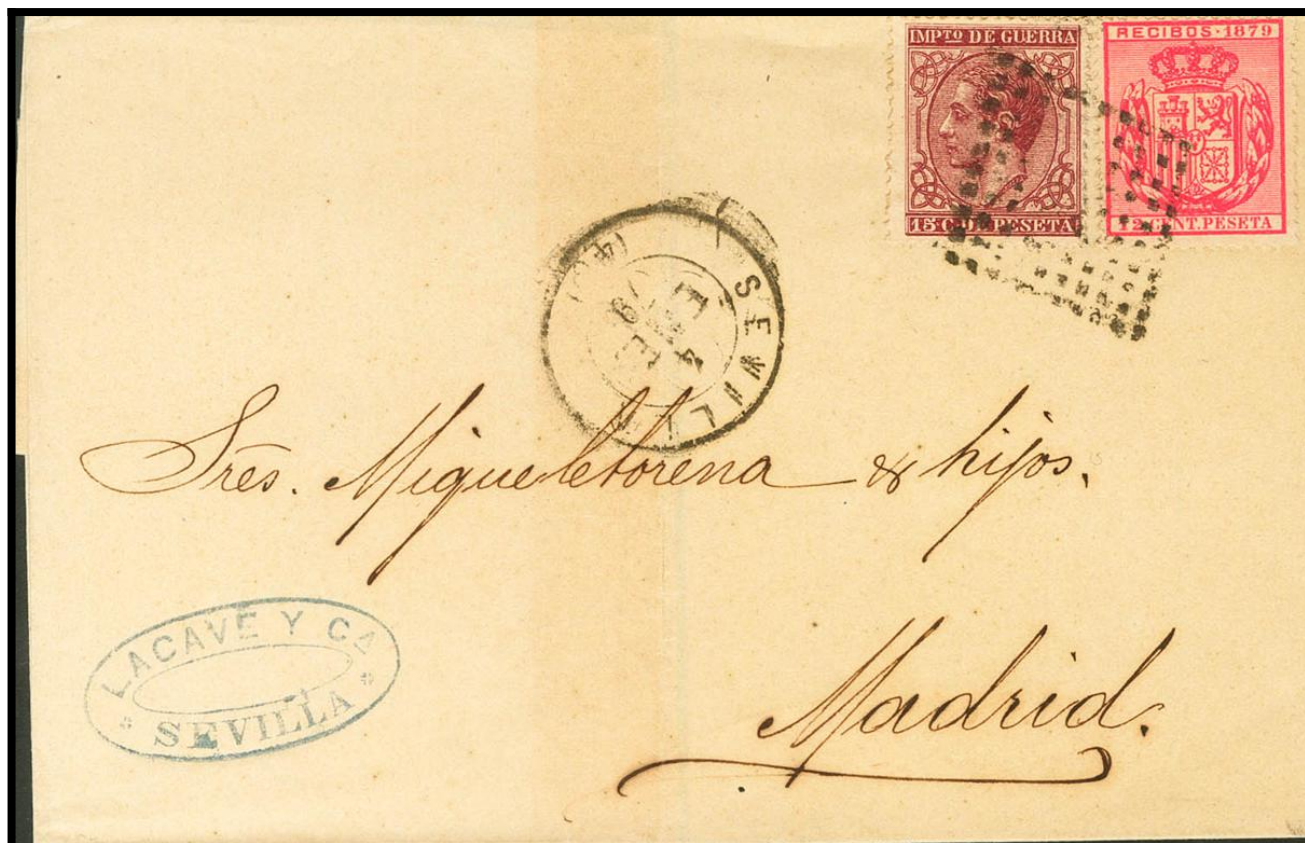 IMPTO DE GUERRA
15 C. DE PESETA
RECIBOS - 1879
12 CENT. PESETA
SEVILLA
4 ENE
79
Sres. Migueletorena & hijos.
LACAVE Y CA
SEVILLA
Madrid.